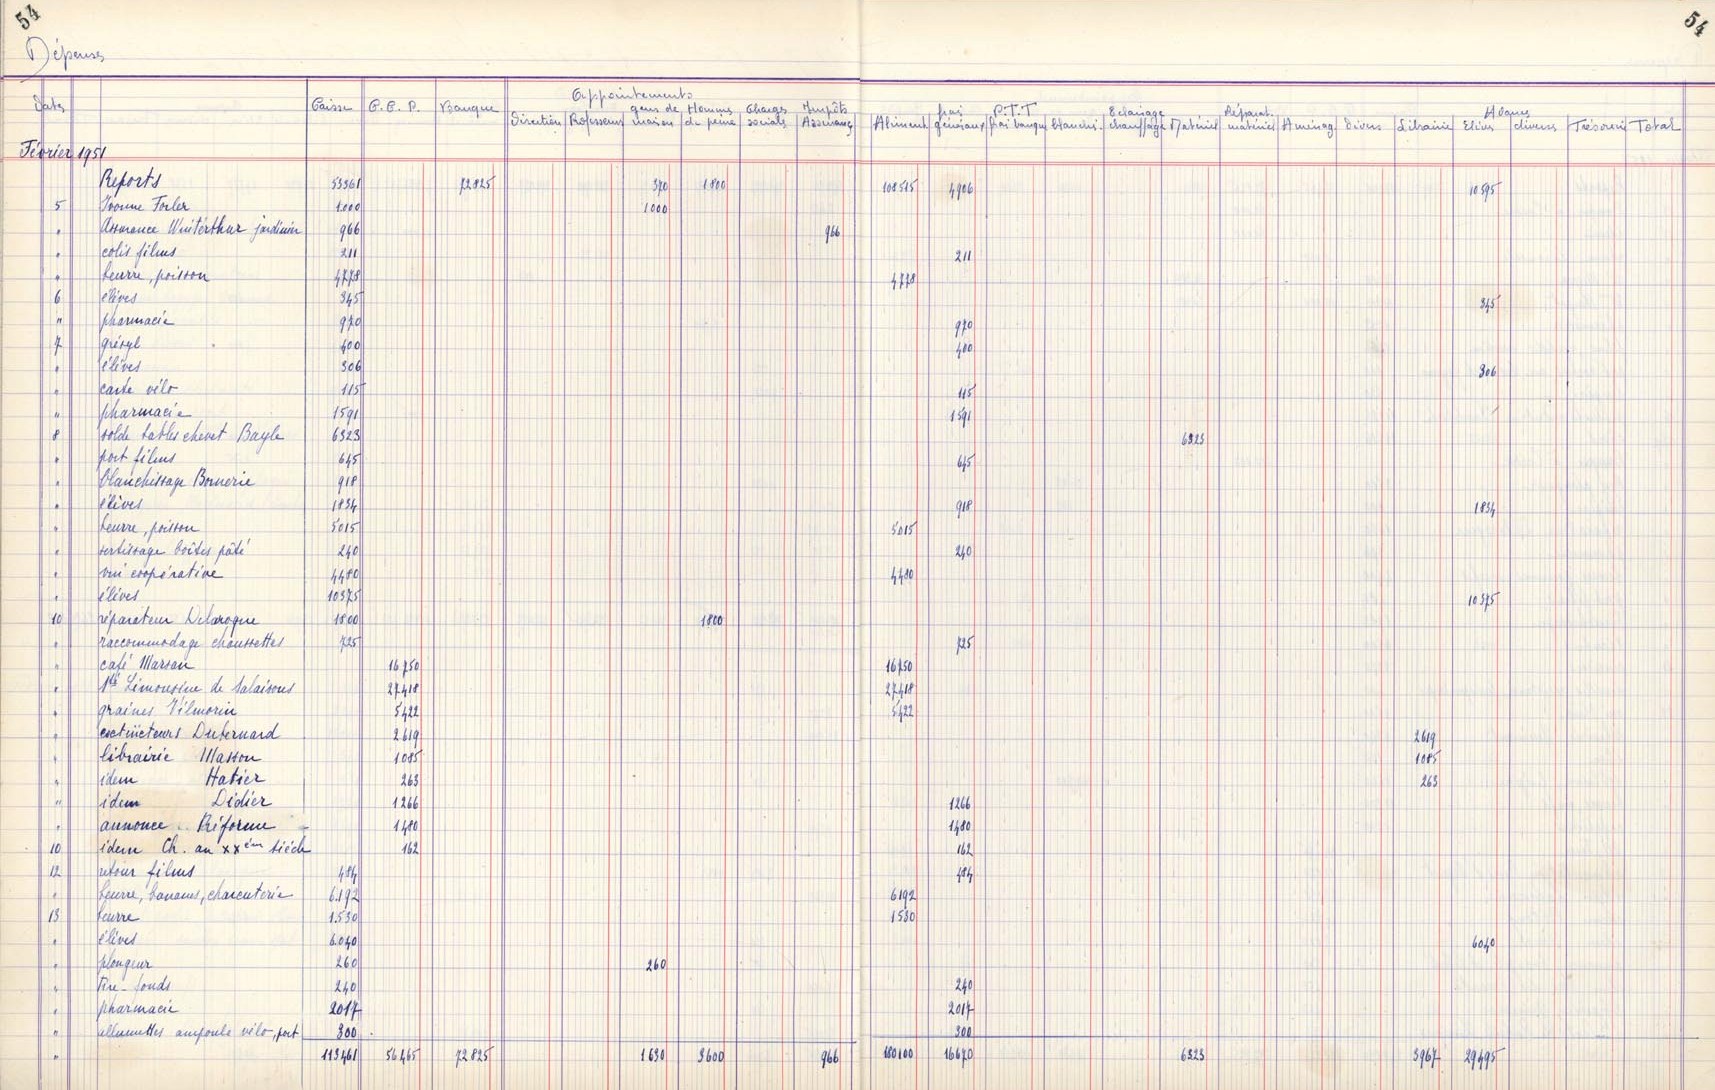 54
54
Dépenses
Appointements
Dates Caisse C.C.P. Banque Direction Professeurs gens de maison Hommes de peine Charges sociales Impôts Assurances Aliment frais généraux P.T.T frais banque Blanchi. Eclairage chauffage Matériel Réparat. matériel Aménag. Divers Librairie Elèves diverses Trésorerie Total
Février 1951
Reports 53361 72825 370 1800 108515 4906 10595
5 Yvonne Forler 1.000 1000
" Assurance Wintërthur jardinier 966 966
" colis films 211 211
" beurre, poisson 4778 4778
6 élèves 345 345
" pharmacie 970 970
7 grésyl 400 400
" élèves 306 306
" carte vélo 115 115
" pharmacie 1591 1591
8 solde tables chevet Bayle 6323 6323
" port films 645 645
" blanchissage Bornerie 918 918
" élèves 1834 1834
" beurre, poisson 5015 5015
" sertissage boîtes pâté 240 240
" vin coopérative 4480 4480
" élèves 10375 10375
10 réparateur Delaroque 1800 1800
" raccommodage chaussettes 725 725
" café Marsan 16750 16750
" Sté Limousine de Salaisons 27418 27418
" graines Vilmorin 5422 5422
" extincteurs Dubernard 2619 2619
" librairie Masson 1085 1085
" idem Hatier 263 263
" idem Didier 1266 1266
" annonce Réforme 1480 1480
10 idem Ch. au XXème siècle 162 162
12 retour films 484 484
" beurre, bananes, charcuterie 6.192 6192
13 beurre 1.530 1530
" élèves 6.040 6040
" plongeur 260 260
" tire-fonds 240 240
" pharmacie 2017 2017
" allumettes ampoule vélo, port 300 300
" 113461 56465 72825 1630 3600 966 180100 16670 6323 3967 29495